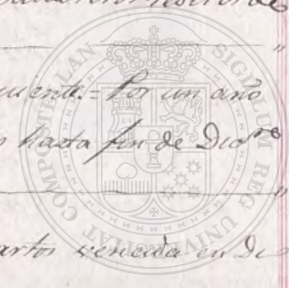 uiente = Por un año
hasta fin de Dic.re
artos vencida en Di
SIGILLUM REG UNIVERSITAT COMPOSTELLAN